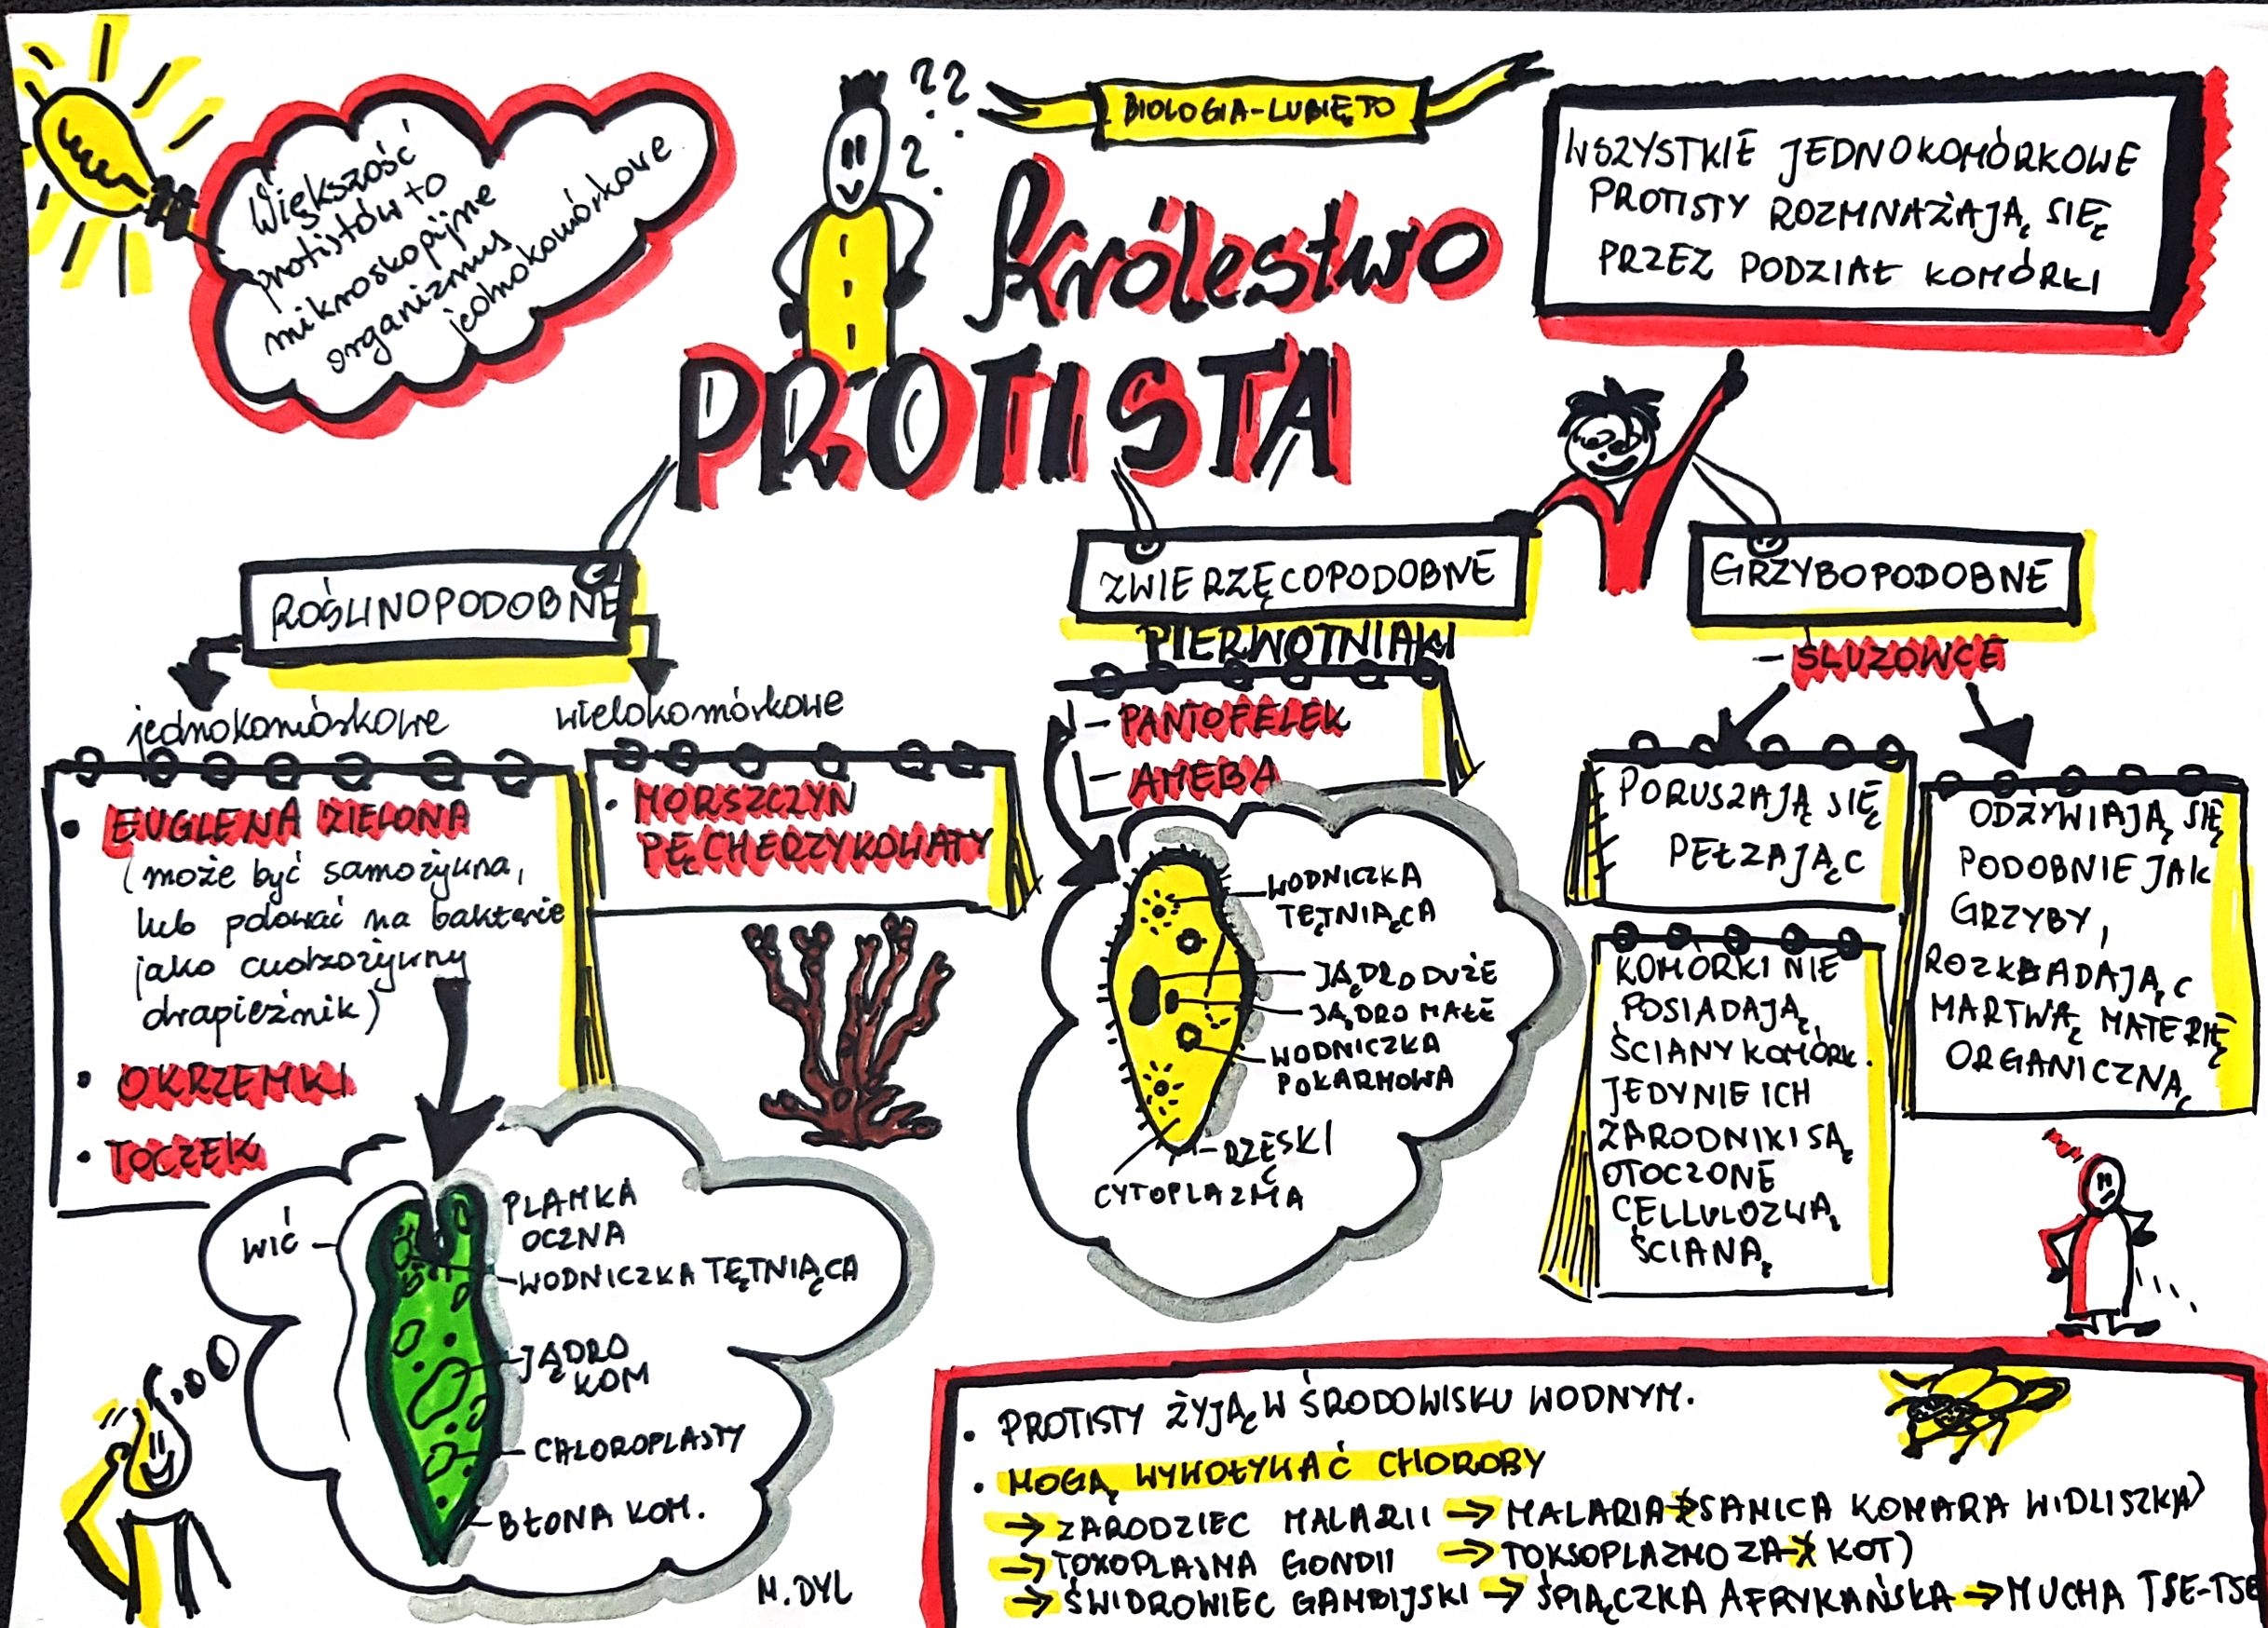 Większość
protistów to
mikroskopijne
organizmy
jednokomórkowe
?? ?
BIOLOGIA-LUBIĘ TO
Królestwo
PROTISTA
WSZYSTKIE JEDNOKOMÓRKOWE
PROTISTY ROZMNAŻAJĄ SIĘ
PRZEZ PODZIAŁ KOMÓRKI
ROŚLINOPODOBNE
jednokomórkowe
wielokomórkowe
• EUGLENA ZIELONA
(może być samożywna,
lub polować na bakterie
jako cudzożywny
drapieżnik)
• OKRZEMKI
• TOCZEK
• MORSZCZYN
PĘCHERZYKOWATY
WIĆ
PLAMKA
OCZNA
WODNICZKA TĘTNIĄCA
JĄDRO
KOM
CHLOROPLASTY
BŁONA KOM.
M. DYL
ZWIERZĘCOPODOBNE
PIERWOTNIAKI
- PANTOFELEK
- AMEBA
WODNICZKA
TĘTNIĄCA
JĄDRO DUŻE
JĄDRO MAŁE
WODNICZKA
POKARMOWA
RZĘSKI
CYTOPLAZMA
GRZYBOPODOBNE
- ŚLUZOWCE
PORUSZAJĄ SIĘ
PEŁZAJĄC
KOMÓRKI NIE
POSIADAJĄ
ŚCIANY KOMÓRK.
JEDYNIE ICH
ZARODNIKI SĄ
OTOCZONE
CELLULOZWĄ
ŚCIANĄ
ODŻYWIAJĄ SIĘ
PODOBNIE JAK
GRZYBY,
ROZKŁADAJĄC
MARTWĄ MATERIĘ
ORGANICZNĄ
• PROTISTY ŻYJĄ W ŚRODOWISKU WODNYM.
• MOGĄ WYWOŁYWAĆ CHOROBY
→ ZARODZIEC MALARII → MALARIA → (SAMICA KOMARA WIDLISZKA)
→ TOXOPLASMA GONDII → TOKSOPLAZMOZA → KOT)
→ ŚWIDROWIEC GAMBIJSKI → ŚPIĄCZKA AFRYKAŃSKA → MUCHA TSE-TSE